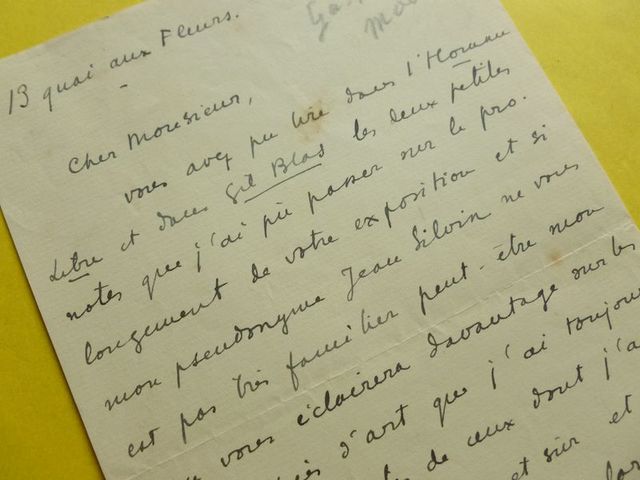 13 quai aux Fleurs.
Cher Monsieur,
vous avez pu lire dans l'Homme
Libre et dans Gil Blas les deux petites
notes que j'ai pu passer sur le pro.
longement de votre exposition et si
mon pseudonyme Jean Silvin ne vous
est pas très familier peut-être mon
vous éclairera davantage sur les
d'art que j'ai toujour
de ceux dont j'a
et sûr et